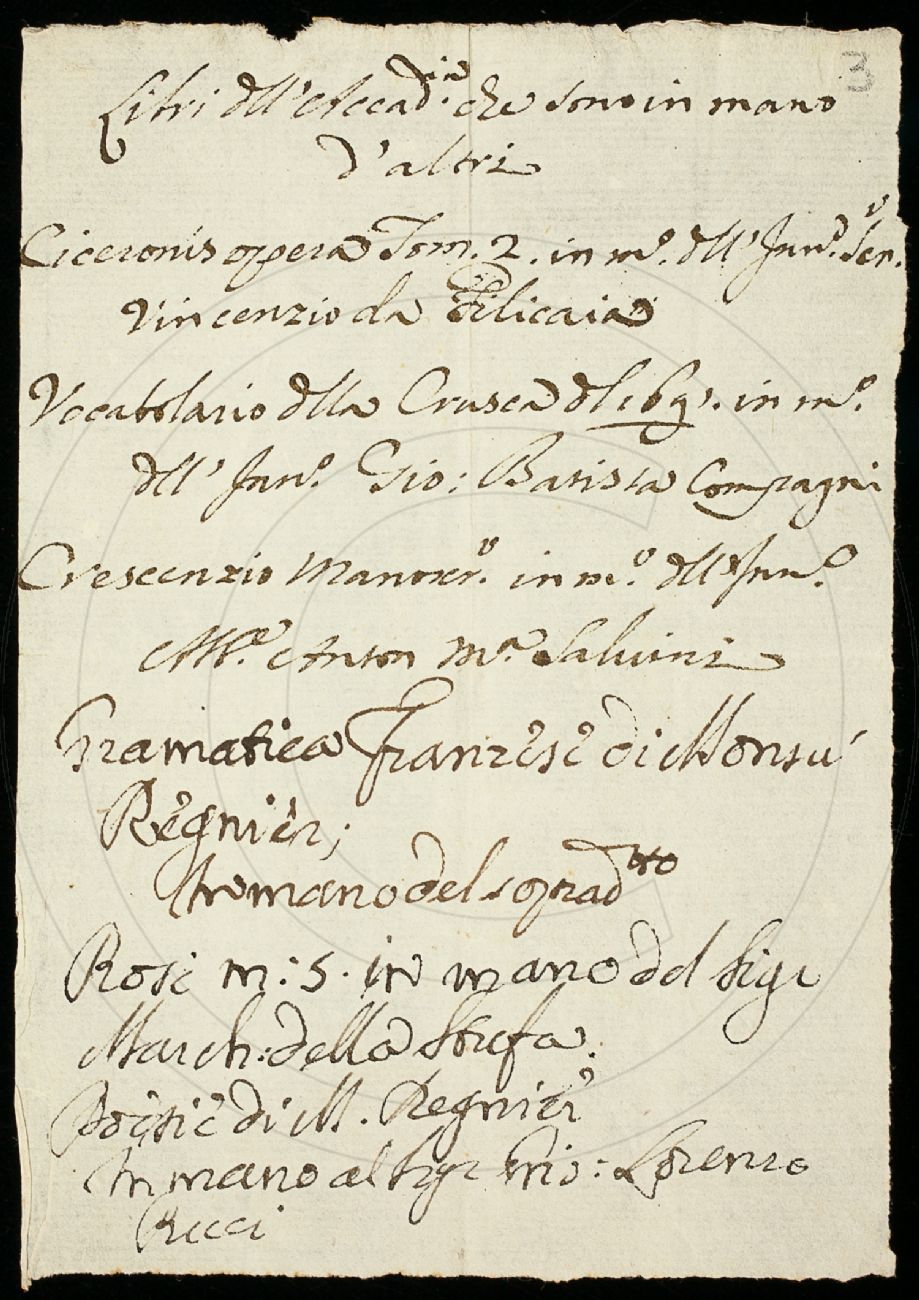 3
Libri dll' Accad.ia che sono in mano
d'altri
Ciceronis opera Tom. 2. in m.o dll' Inn.o Sen.
Vincenzio da Filicaia
Vocabolario dlla Crusca dl 1691. in m.o
dll' Inn.o Gio: Batista Compagni
Crescenzio Manoscr. in m.o dll' Inn.o
Anton M.a Salvini
Gramatica Franzese di Monsù
Regnier;
In mano del soprad.tto
Rosi m: s. in mano del Sigr
March: della Stufa.
Poesie di M. Regnier
In mano al Sigr Lorenzo
Ricci